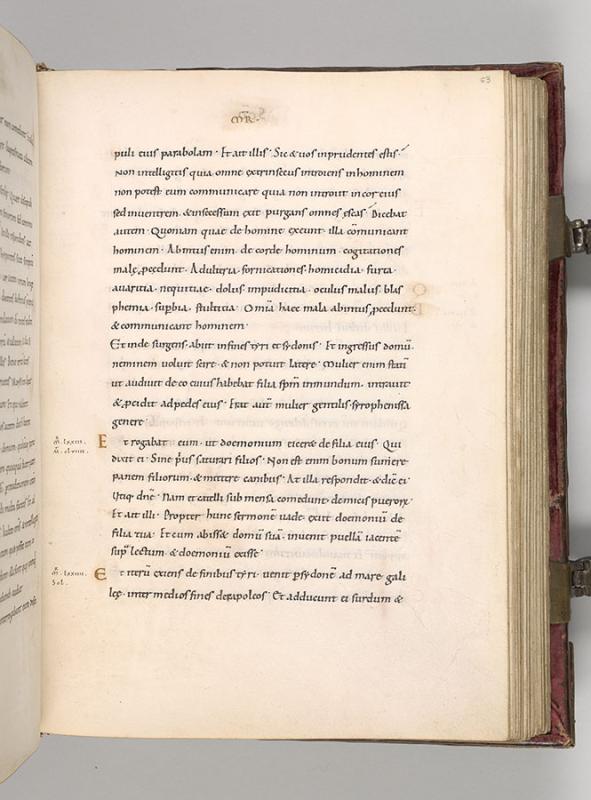 63
MR·
puli eius parabolam · Et ait illis · Sic & uos inprudentes estis ·
Non intelligitis quia omne extrinsecus introiens in hominem
non potest eum communicare quia non introiit in cor eius
sed in uentrem · & insecessum exit purgans omnes escas · Dicebat
autem · Quoniam quae de homine exeunt · illa cōmunicant
hominem · Ab intus enim de corde hominum cogitationes
malę pcedunt · Adulteria · fornicationes · homicidia · furta ·
auaritia · nequitiae · dolus · impudicitia · oculus malus · blas
phemia · supbia · stultitia · Omīa haec mala abintus pcedunt ·
& communicant hominem ·
Et inde surgens · abiit in fines tyri et sydonis · Et ingressus domū ·
neminem uoluit scire · & non potuit latere · Mulier enim statī
ut audiuit de eo cuius habebat filia spm̄ inmundum · intrauit
& pcidit ad pedes eius · Erat autē mulier gentilis · syrophenissa
genere ·
Et rogabat eum · ut doemonium eicer& de filia eius · Qui
dixit ei · Sine p̄us saturari filios · Non est enim bonum sumere
panem filiorum · & mittere canibus · At illa respondit · & dic̄ ei
Utiq· dn̄e · Nam et catelli sub mensa comedunt · de micis pueroꝝ ·
Et ait illi · Propter hunc sermonē uade · exiit doemoniū de
filia tua · Et cum abiiss& domū suā · inuenit puellā iacentē
sup̄ lectum · & doemoniū exisse ·
Et iterū exiens de finibus tyri · uenit p sydonē ad mare gali
leę · inter medios fines decapoleos · Et adducunt ei surdum &